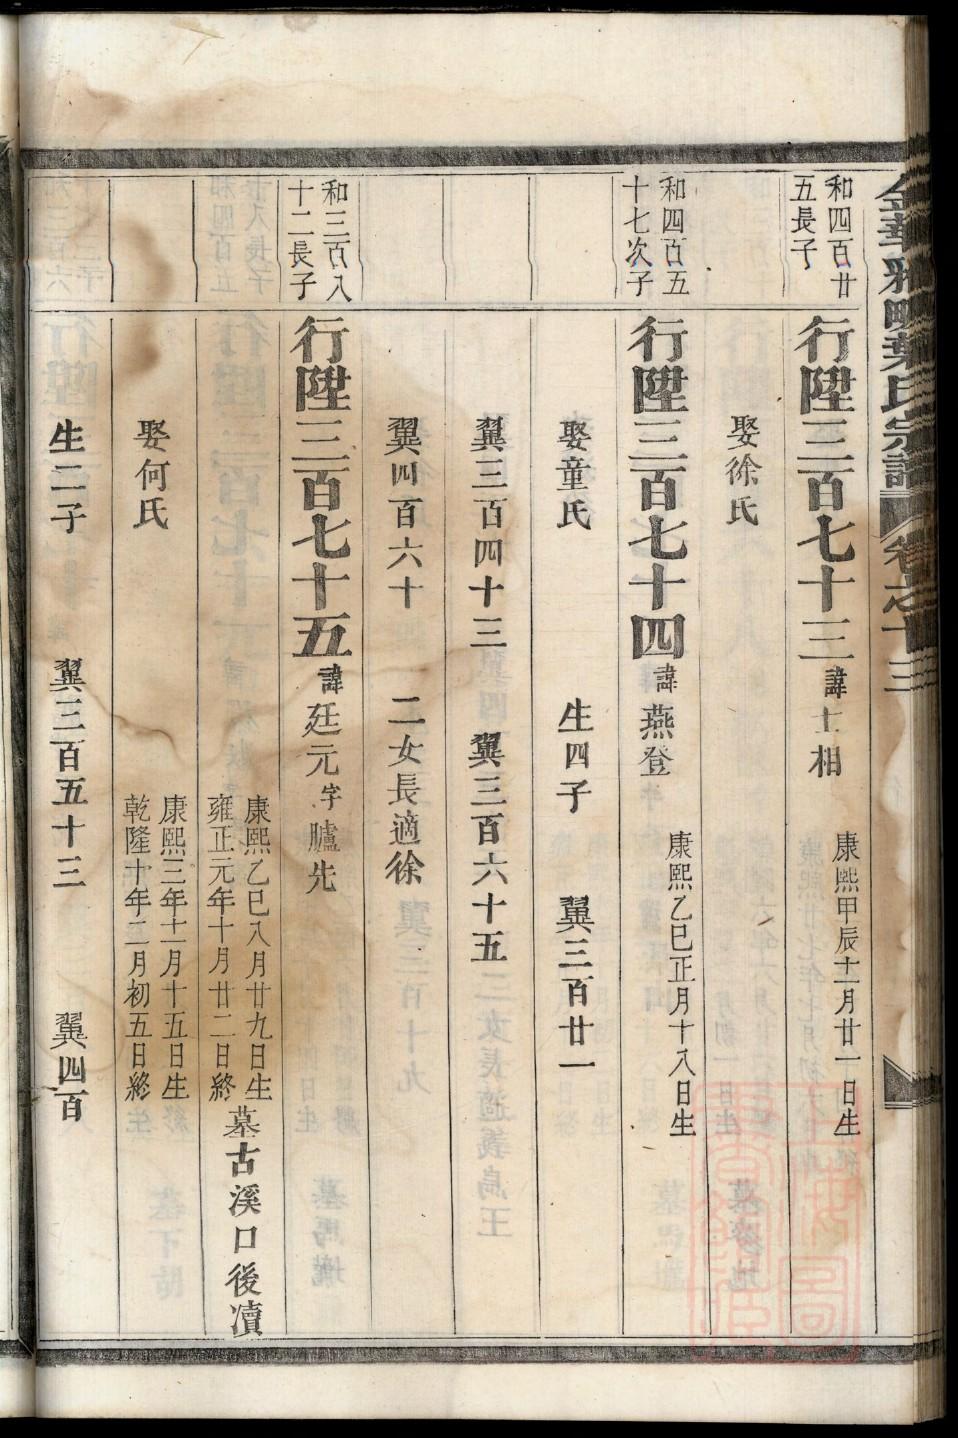 金華彩疇葉氏宗譜 卷之十三
和四百廿
五長子
行陞三百七十三 諱士相
康熙甲辰十一月廿一日生
娶徐氏
和四百五
十七次子
行陞三百七十四 諱燕登
康熙乙巳正月十八日生
娶童氏 生四子 翼三百廿一
翼三百四十三 翼三百六十五
翼四百六十 二女長適徐
和三百八
十二長子
行陞三百七十五 諱廷元字臚先
康熙乙巳八月廿九日生
雍正元年十月廿二日終
墓古溪口後瀆
娶何氏
康熙三年十一月十五日生
乾隆十年二月初五日終
生二子 翼三百五十三 翼四百